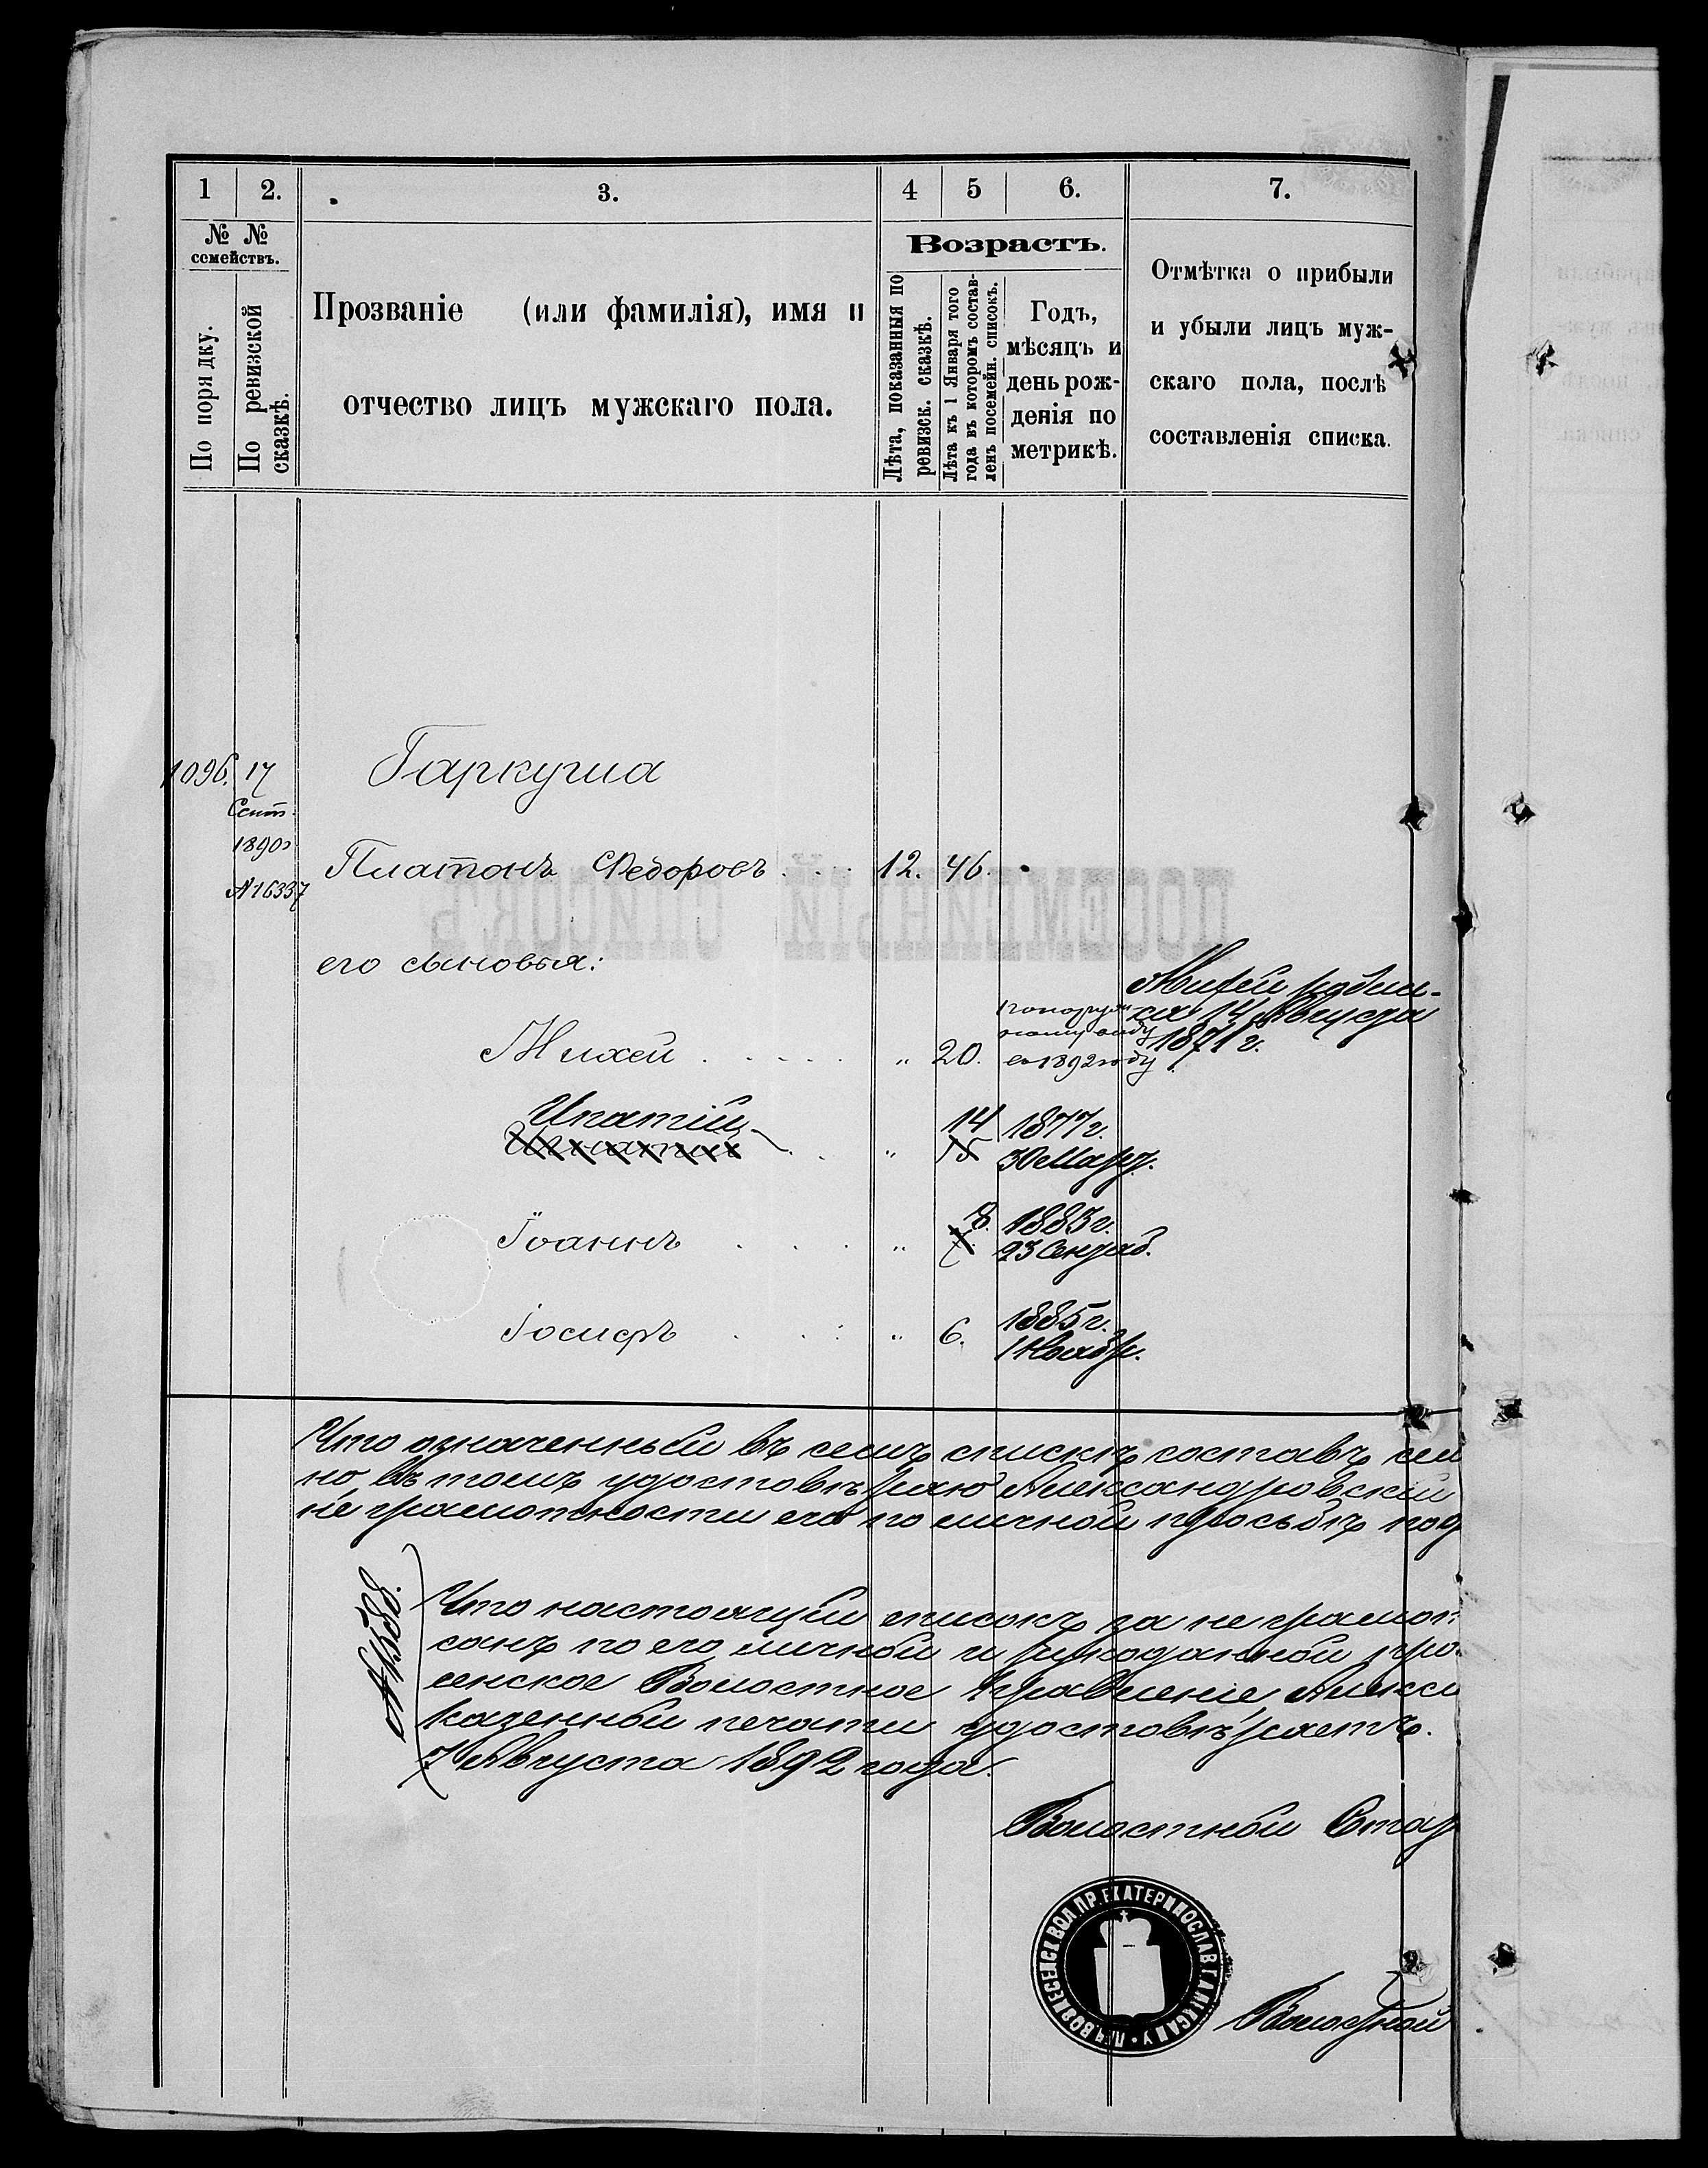 1 2. 3. 4 5 6. 7.
№ №
семействъ.
По порядку.
По ревизской сказкѣ.
Прозваніе (или фамилія), имя и
отчество лицъ мужскаго пола.
Возрастъ.
Лѣта, показанныя по
ревизск. сказкѣ.
Лѣта къ 1 Января того
года въ которомъ состав-
ленъ посемейн. списокъ.
Годъ,
мѣсяцъ и
день рож-
денія по
метрикѣ.
Отмѣтка о прибыли
и убыли лицъ муж-
скаго пола, послѣ
составленія списка.
1096. 17 Гаркуша
Сент.
1890г
№16337
Платонъ Ѳедоровъ 12. 46.
ПОСЕМЕЙНЫЙ СПИСОКЪ
его сыновья:
Михей " 20.
въ 1892 году
Михей родил-
ся 14 Августа
1871 г.
Ипатій 14 1877 г.
Игнатій " 15 30 Март.
Іоаннъ " 8. 1883 г.
7. 23 Сентяб.
Іосифъ " 6. 1885 г.
1 Ноябр.
Что означенный въ семъ спискѣ составъ сем
но въ томъ удостовѣряю Александровскій
не грамотности его по личной просьбѣ под
№1588.
Что настоящій списокъ за не грамот
санъ по его личной и рукоданной про
сенское Волостное Правленіе Алекса
казенной печати удостовѣряетъ.
7 Августа 1892 года.
Волостной Стар
ВОЗНЕСЕНСК ВОЛ ПР. ЕКАТЕРИНОСЛАВ Г АЛЕКСАН У
Волостной